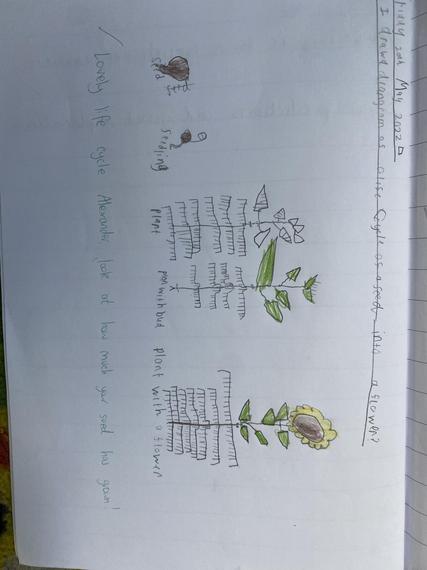 Friday 20th May 2022
I drawd diangram as a life Cycle as a seed into a flower?
seed
seedling
plant
plant with a flower
Lovely life cycle Alexander, look at how much your seed has grown!